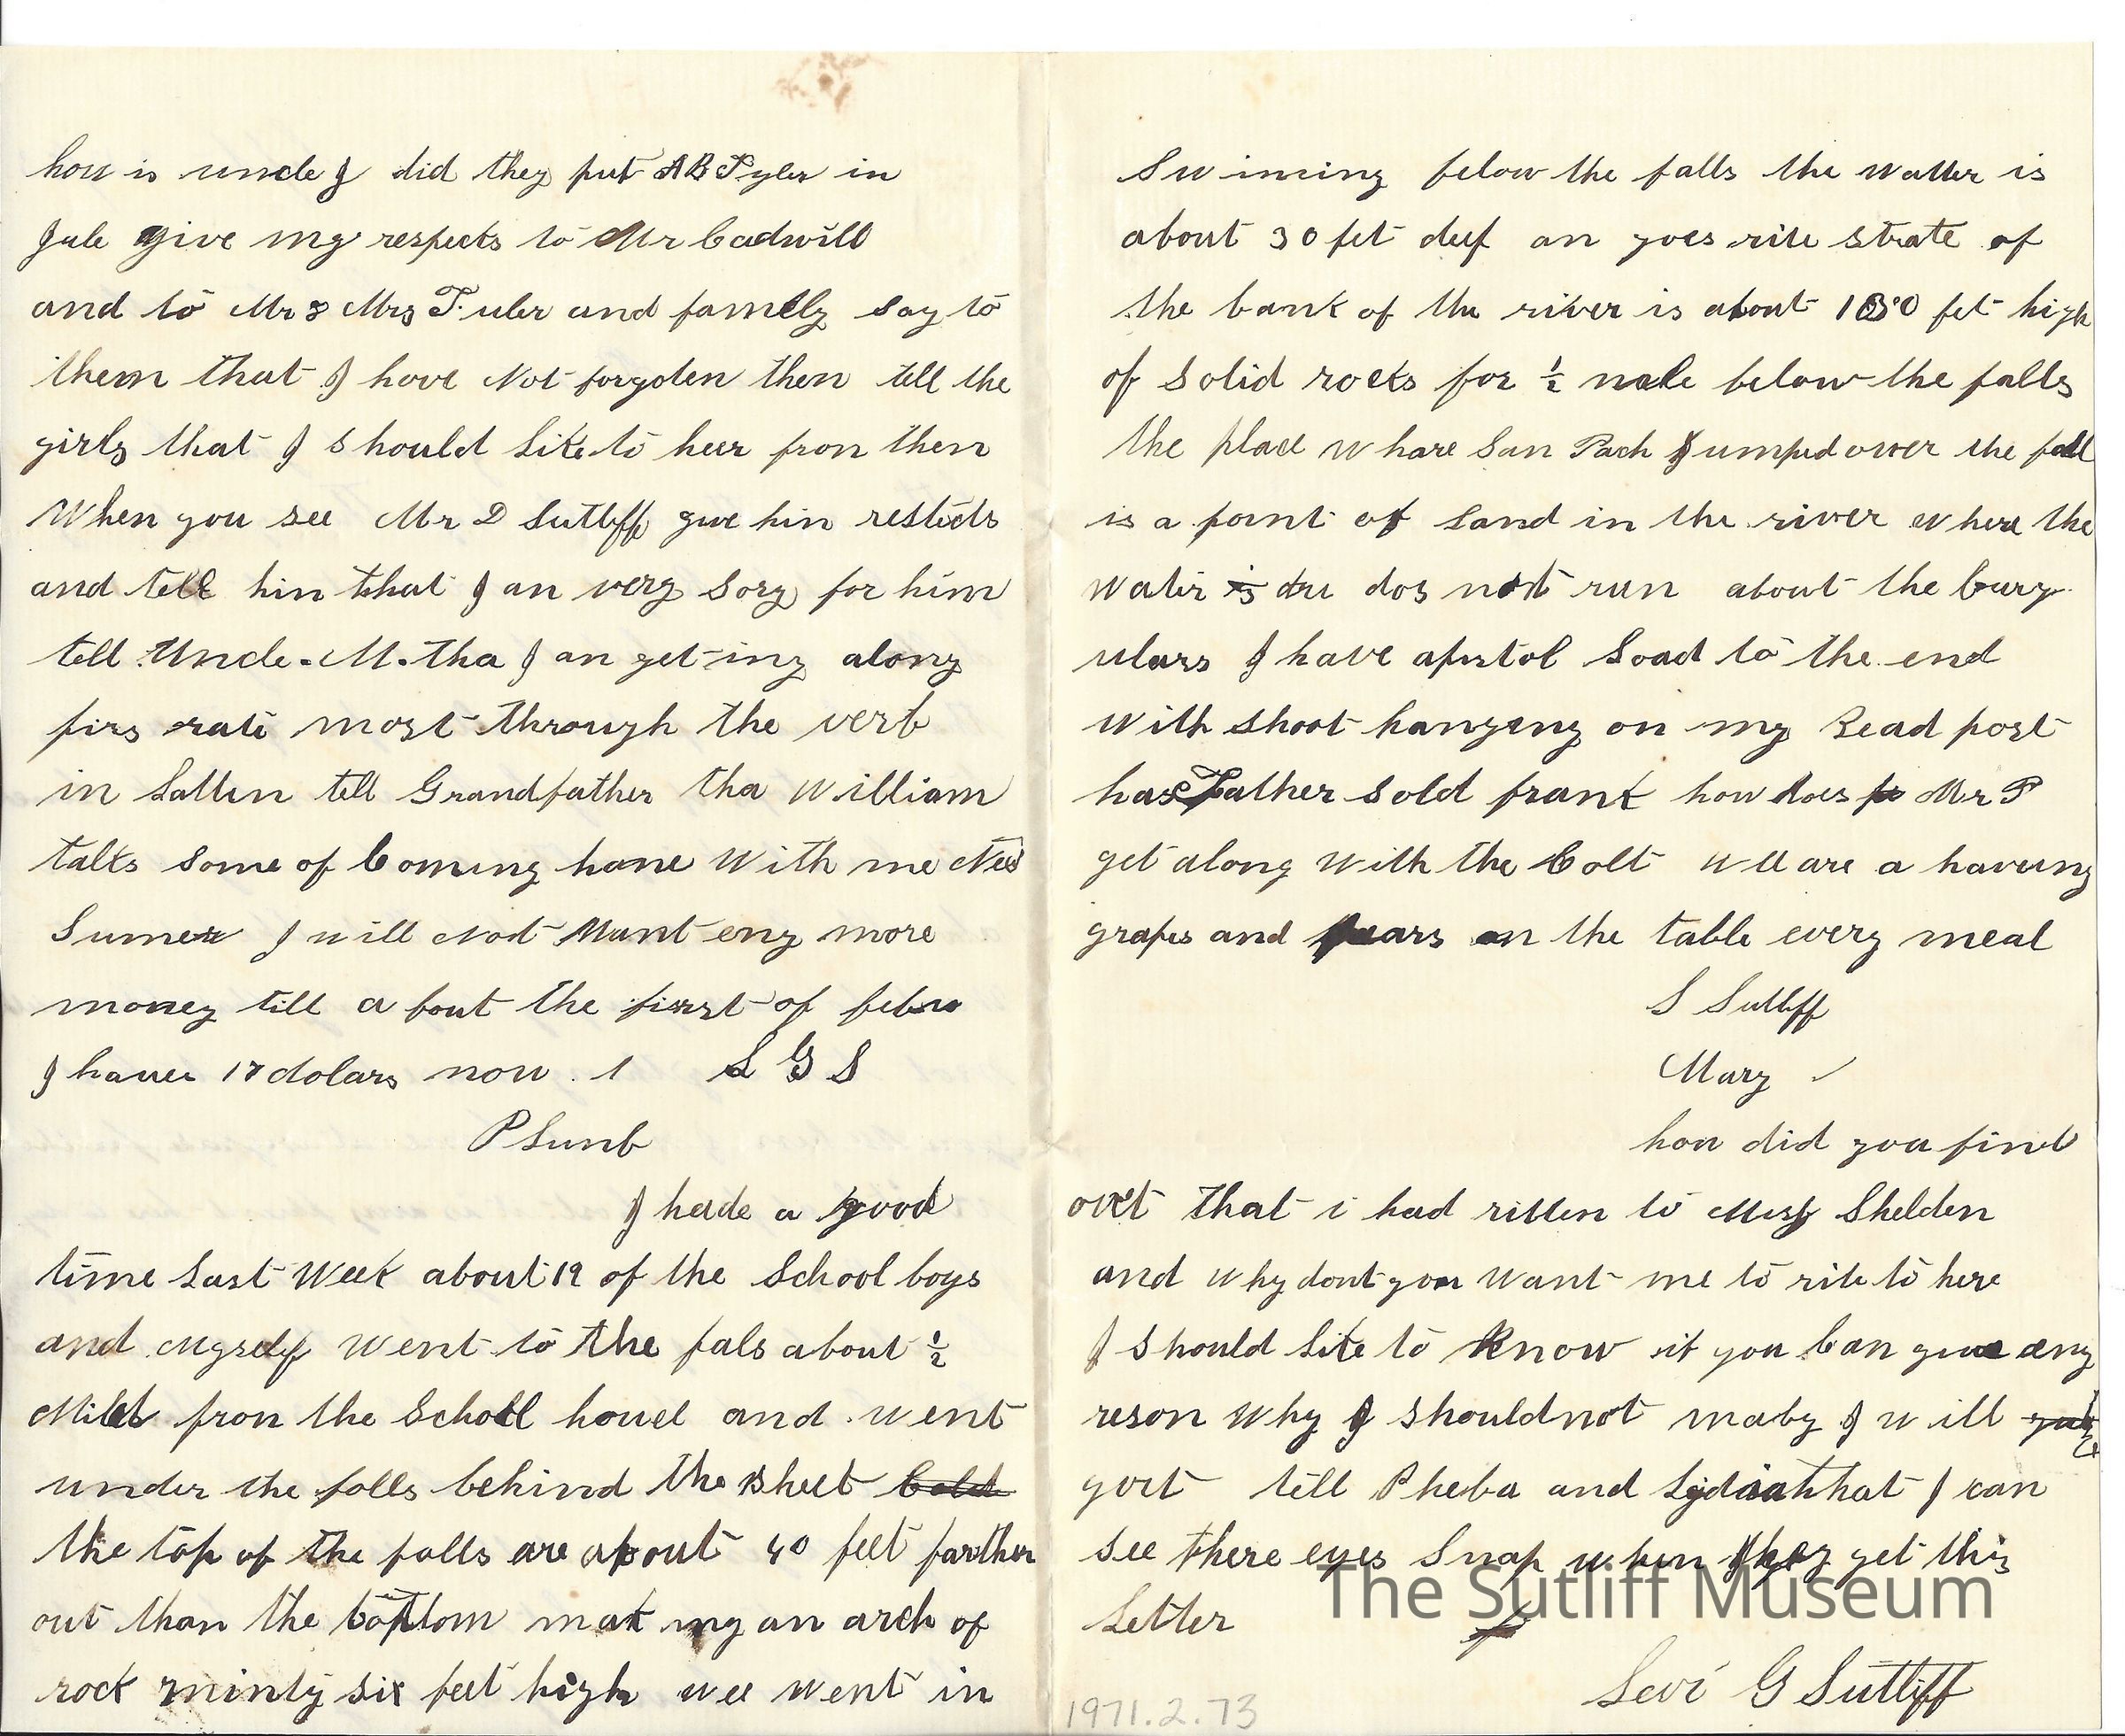 how is uncle J did they put A B Tyler in
Jale give my respects to Mr Cadwill
and to Mr & Mrs T. uler and famely say to
them that I hove Not forgoten then tell the
girls that I should like to heer fron then
When you see Mr D Sutliff give hin restects
and tell hin that I an very sory for him
tell Uncle. M. tha I an get-ing along
firs rate most through the verb
in Latten tell Grandfather tha William
talks some of Coming hone With me Nex
Sumer I will Not Want eny more
money till a bout the first of febu
I haves 17 dolars now . 1 L G S
P Lumb
I hade a good
time Last Week about 19 of the School boys
and Myself Went to the fals about ½
Mile fron the School house and went
under the falls behind the sheet
the top of the falls are about 40 feet farther
out than the bottom mak ing an arch of
rock ninty six feet high wee went in
Swiming below the falls the watter is
about 30 fet deep an goes rite strate of
the bank of the river is about 180 fet high
of solid rocks for ½ mile below the falls
the place whare San Pach Jumped over the fall
is a point of Land in the river where the
water is dos not run about the burg
ulars I have a pistol Load to the end
with shoot hanging on my Bead post
has Father sold frank how does Mr P
get along With the Colt Wee are a haveing
grapes and pears on the table every meal
S Sutliff
Mary
how did you find
out that i had ritten to Miss Shelden
and why dont you Want me to rite to here
I should Like to Know if you Can give eny
reson Why I should not maby I will
yort tell Pheba and Lydia that I can
see there eyes Snap when they get this
Letter
Levi G Sutliff
1971.2.73
The Sutliff Museum